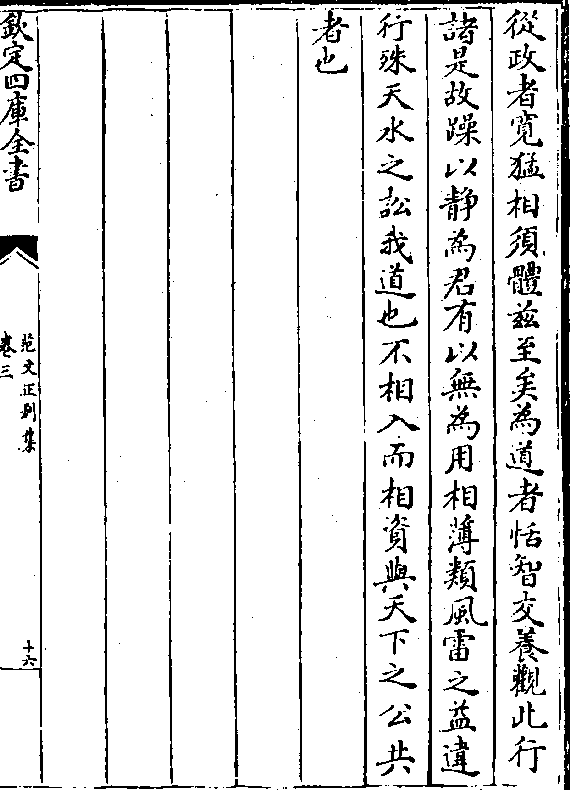 從政者寛猛相須體兹至矣為道者恬智交養觀此行
諸是故躁以静為君有以無為用相薄類風雷之益違
行殊天水之訟我道也不相入而相資與天下之公共
者也
欽定四庫全書
范文正别集
卷三
十六